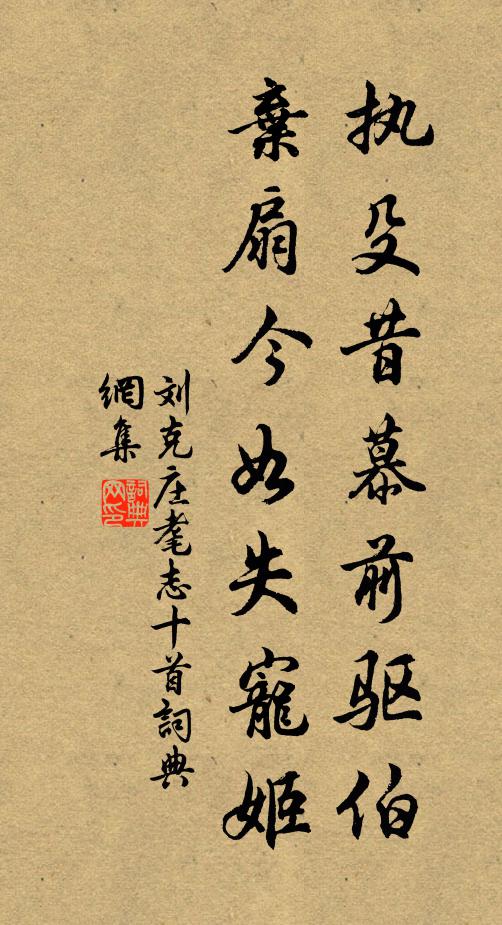 执殳昔慕前驱伯
弃扇今如失寵姬
刘克庄耄志十首詞典
網集
詞典
网印